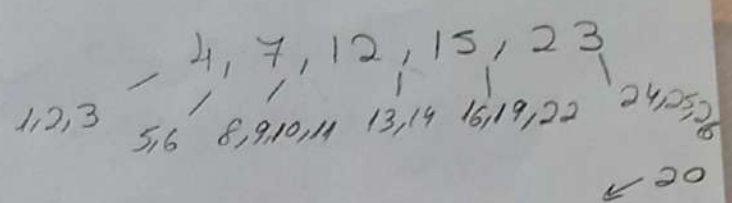 4, 7, 12, 15, 23
1,2,3 5,6 8,9,10,11 13,14 16,19,22 24,25,26
20